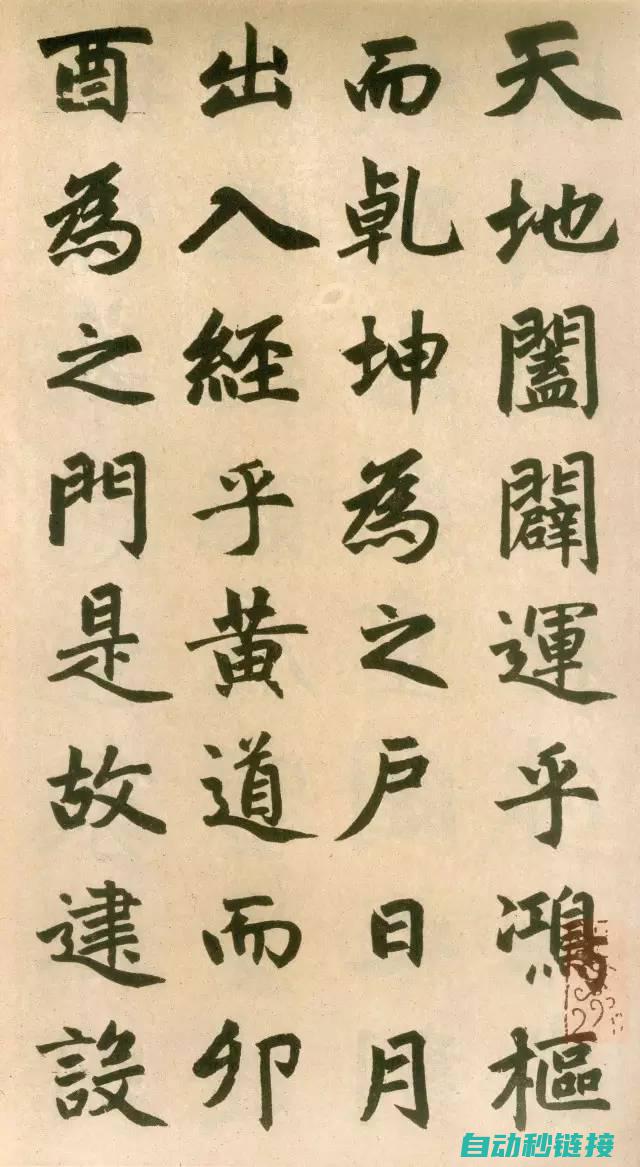 天地闔闢運乎鴻樞
而乹坤為之户日月
出入經乎黃道而卯
酉為之門是故建設
自动秒链接